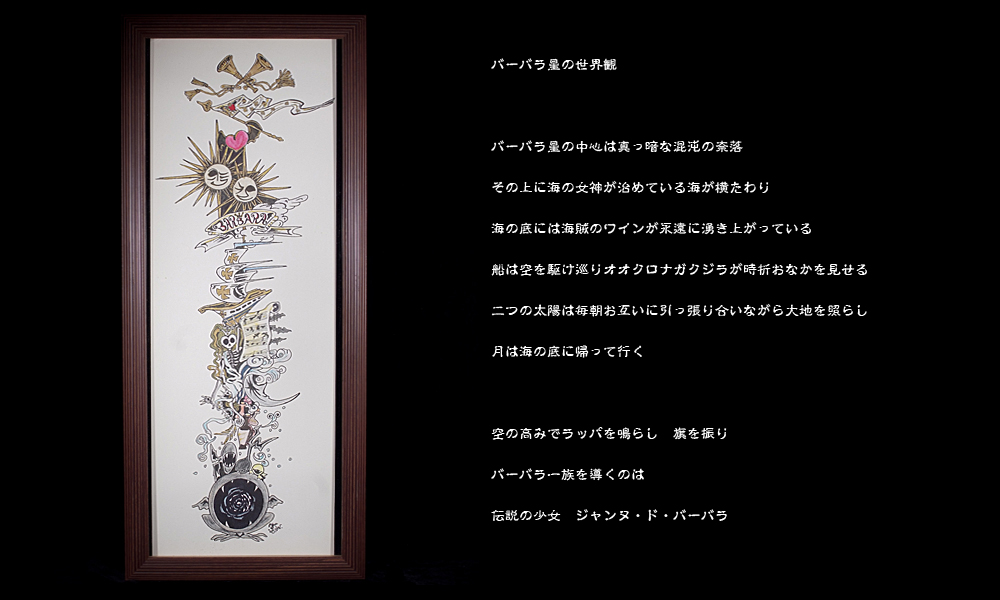 BARBARA
バーバラ星の世界観
バーバラ星の中心は真っ暗な混沌の奈落
その上に海の女神が治めている海が横たわり
海の底には海賊のワインが永遠に湧き上がっている
船は空を駆け巡りオオクロナガクジラが時折おなかを見せる
二つの太陽は毎朝お互いに引っ張り合いながら大地を照らし
月は海の底に帰って行く
空の高みでラッパを鳴らし　旗を振り
バーバラ一族を導くのは
伝説の少女　ジャンヌ・ド・バーバラ